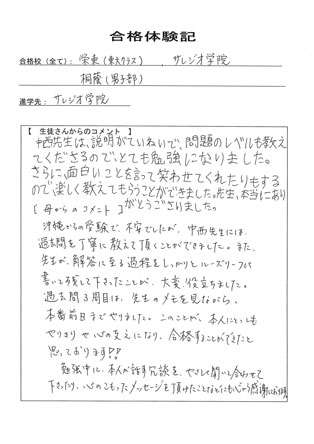 合格体験記
合格校(全て): 栄東(東大クラス) , サレジオ学院
桐蔭(男子部)
進学先: サレジオ学院
【 生徒さんからのコメント 】
中西先生は、説明がていねいで、問題のレベルも教え
てくださるので、とても勉強になりました。
さらに、面白いことを言って笑わせてくれたりもする
ので楽しく教えてもらうことができました。先生、本当にあり
がとうございました。
[ 母からのコメント ]
沖縄からの受験で、不安でしたが、中西先生には、
過去問を丁寧に教えて頂くことができました。また、
先生が、解答に至る過程をしっかりとルーズリーフに
書いて残して下さったことが、大変、役立ちました。
過去問3周目は、先生のメモを見ながら、
本番前日までやりました。このことが、本人にとっても
やりきりや心の支えになり、合格することができたと
思っております!!
勉強中に、本人が話す冗談を、やさしく聞いて合わせて
下さったり、心のこもったメッセージを頂けたことなどにも心から感謝